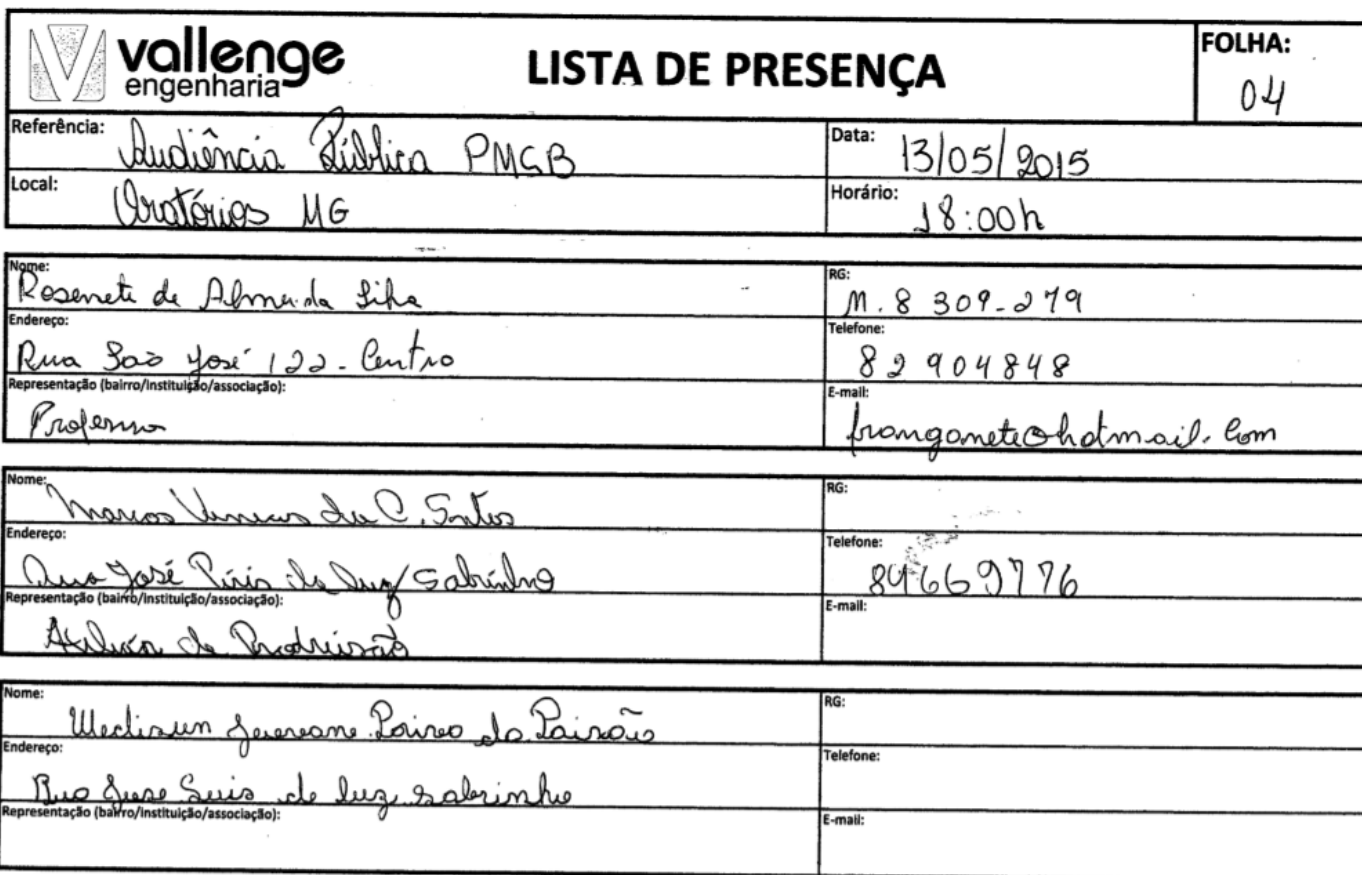 vallenge
engenharia
LISTA DE PRESENÇA
FOLHA:
04
Referência: Audiência Pública PMSB
Data: 13/05/2015
Local: Oratórios MG
Horário: 18:00h
Nome: Rosenete de Almeida Silva
RG: M. 8 309-279
Endereço: Rua São José 122 - Centro
Telefone: 82904848
Representação (bairro/instituição/associação): Professora
E-mail: franganete@hotmail.com
Nome: Marcos C. Santos
RG:
Endereço: Rua José da Luz Sobrinho
Telefone: 84669776
Representação (bairro/instituição/associação): de Produção
E-mail:
Nome: da Paixão
RG:
Endereço: Rua Jose Luis de luz sobrinho
Telefone:
Representação (bairro/instituição/associação):
E-mail: